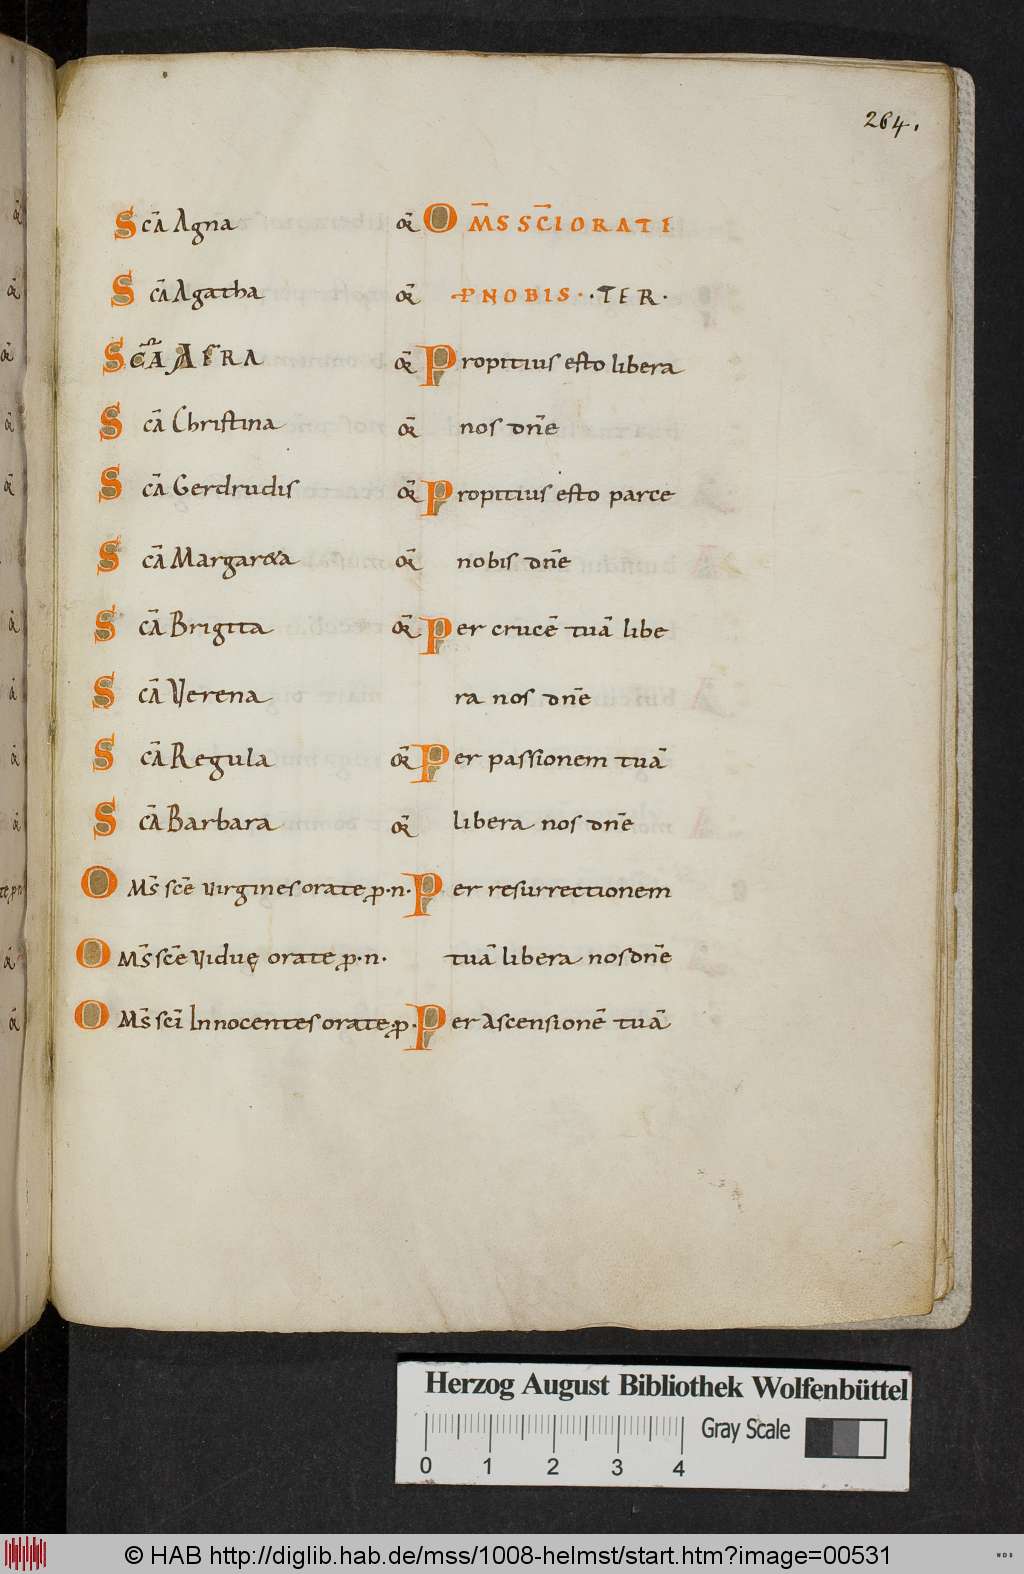 264.
Scā Agna or̄
Scā Agatha or̄
SCĀ AFRA or̄
Scā Christina or̄
Scā Gerdrudis or̄
Scā Margar&a or̄
Scā Brigitta or̄
Scā Verena
Scā Regula or̄
Scā Barbara or̄
Om̄s scē virgines orate p·n·
Om̄s scē viduę orate p·n·
Om̄s scī Innocentes orate p·
OM̄S SC̄I ORATE
P NOBIS · · TER ·
Propitius esto libera
nos dn̄e
Propitius esto parce
nobis dn̄e
Per crucē tuā libe
ra nos dn̄e
Per passionem tuā
libera nos dn̄e
Per resurrectionem
tuā libera nos dn̄e
Per Ascensionē tuā
Herzog August Bibliothek Wolfenbüttel
Gray Scale
0 1 2 3 4
© HAB http://diglib.hab.de/mss/1008-helmst/start.htm?image=00531